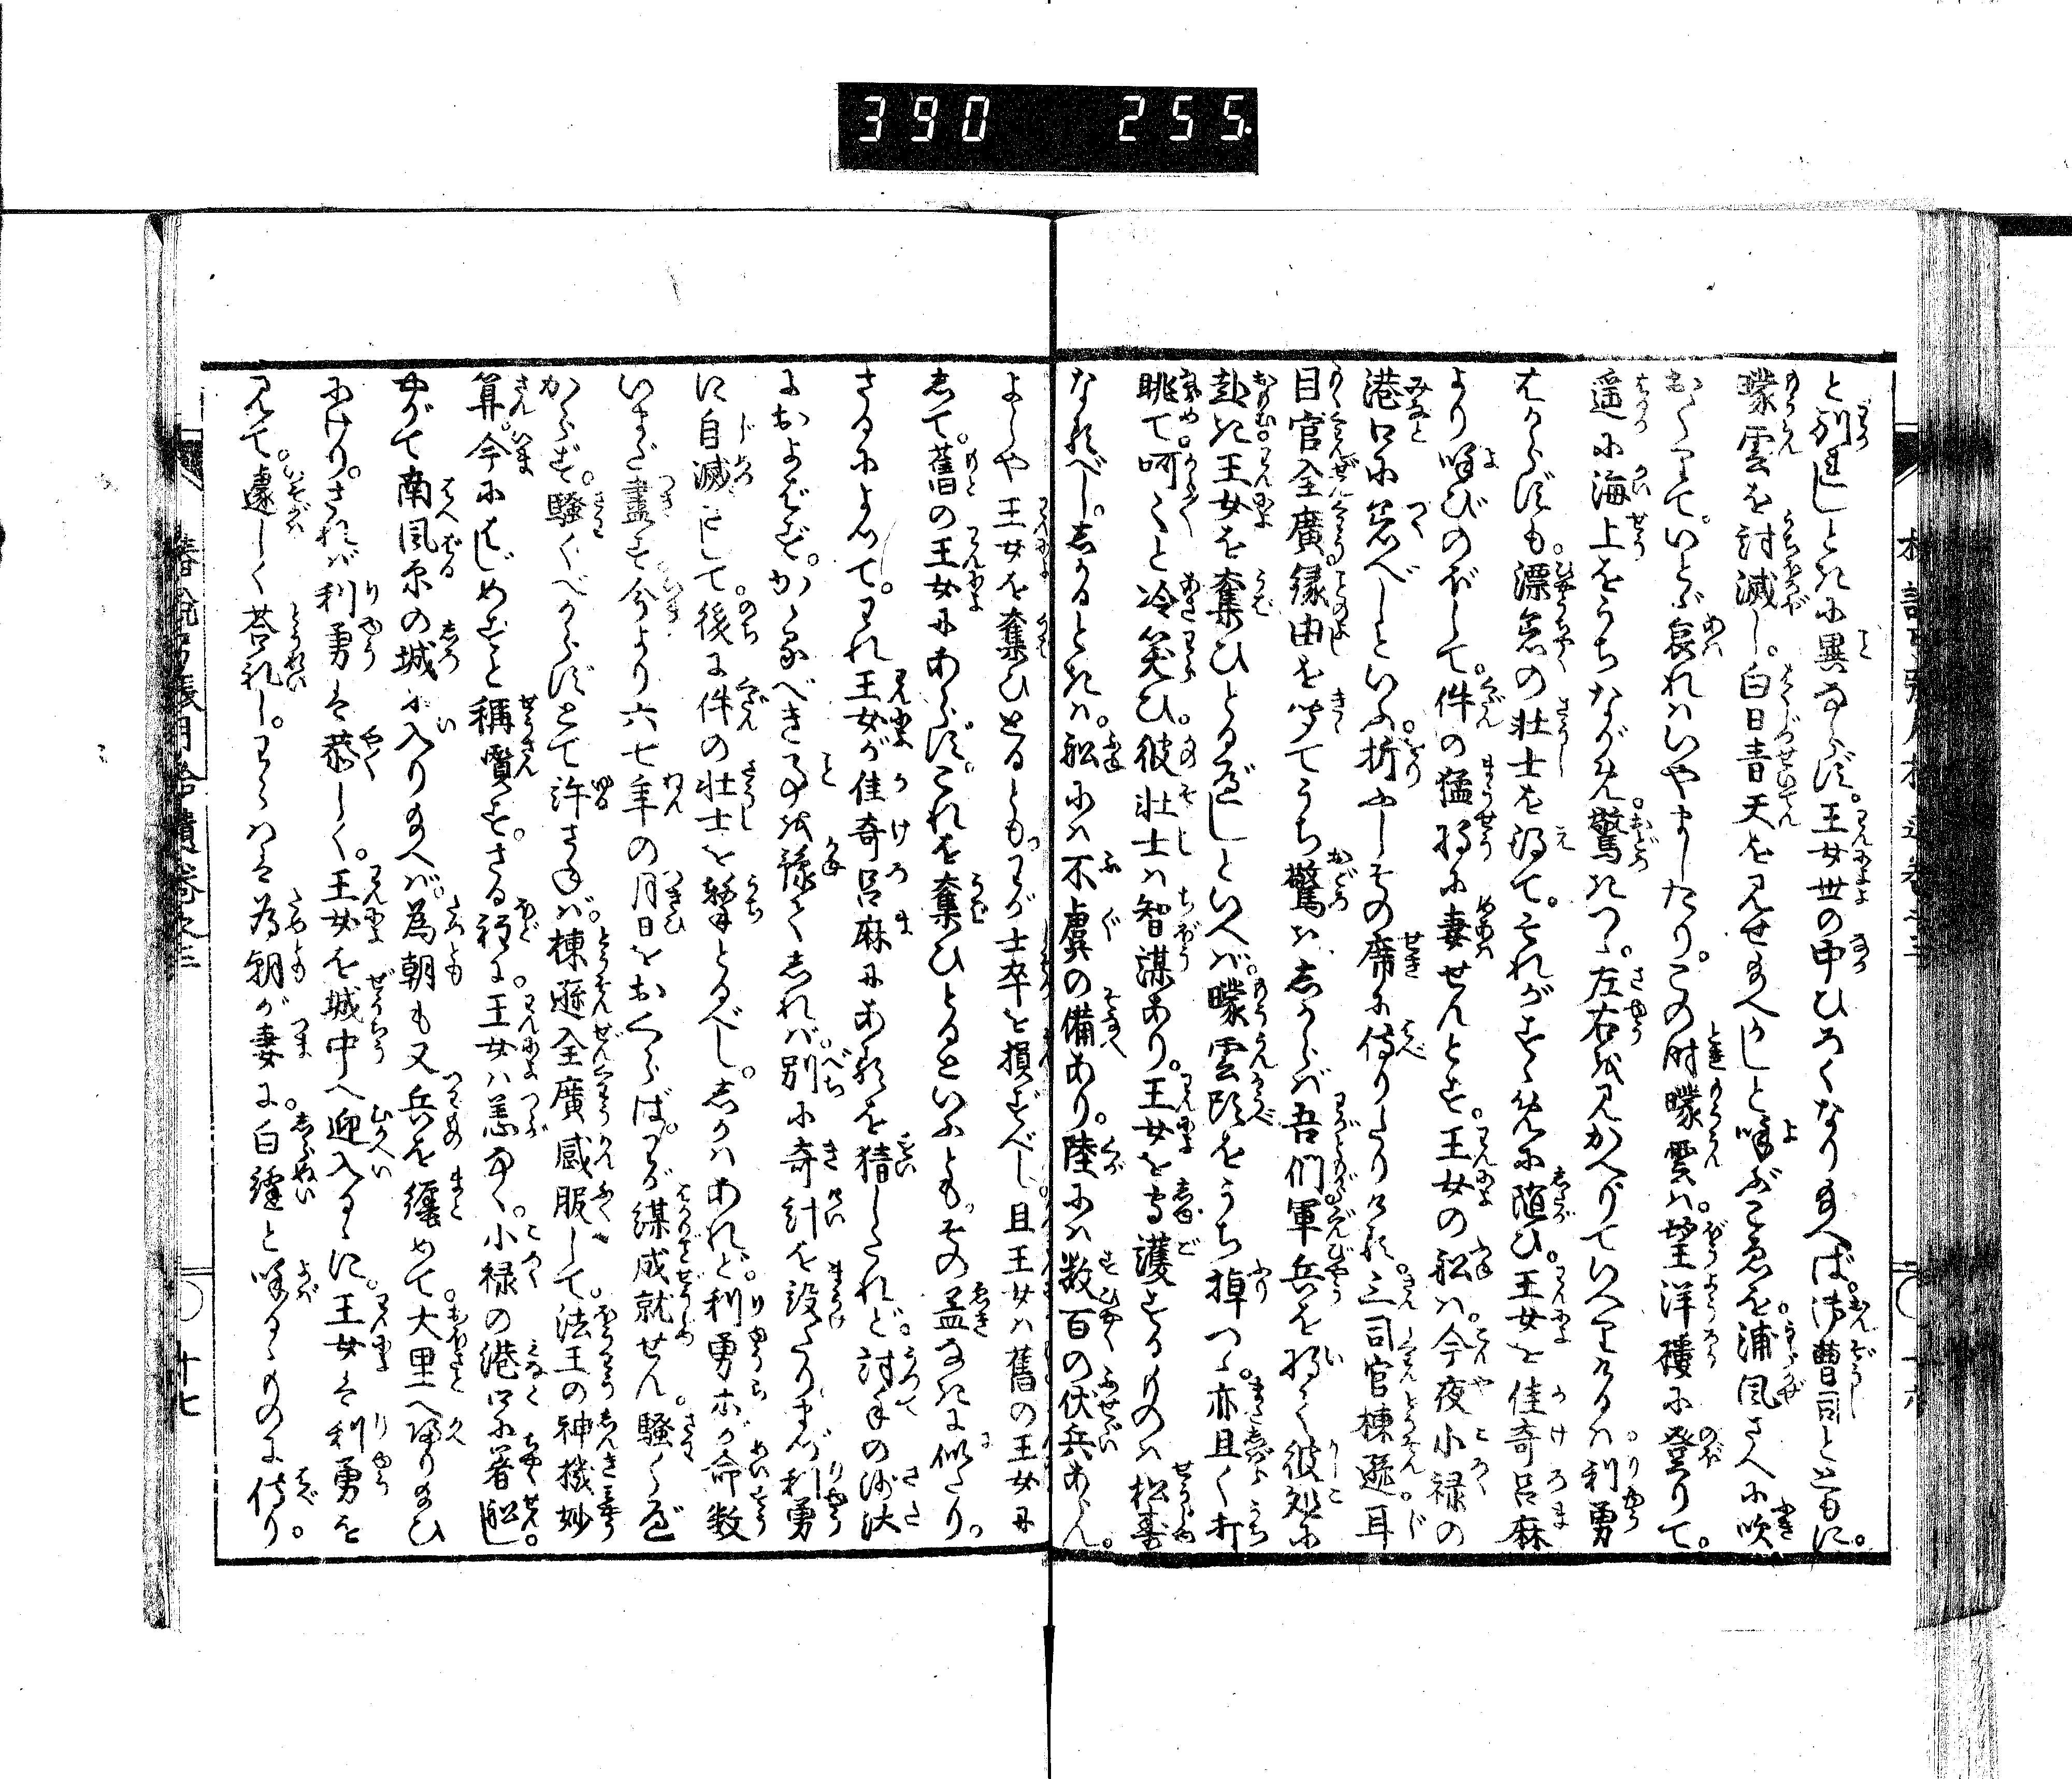 390 255.
と別れしときに異ならず。王女世の中ひろくなり給へば。御曹司とともに。
曚雲を討滅し。白日青天を見せ給へかしと呼ぶこゑを。浦風さへに吹
おくりて。いとゞ哀れはいやましたり。この時曚雲は。望洋樓に登りて。
遥に海上をうちながめ。驚きつゝ。左右を見かへりていへりけるは。利勇
はからずも。漂着の壮士を得て。それがすゝめに随ひ。王女を佳奇呂麻
より呼びのぼして。件の猛将に妻せんとす。王女の舩は。今夜小禄の
港口に着べしといふ。折ふしその席に侍りたりける。三司官棟遜。耳
目官全廣。縁由を聞てうち驚き。しからば吾們軍兵を将て彼処に
赴き。王女を奪ひとるべしといへば。曚雲頭をうち掉つゝ。亦且く打
眺て。呵〻と冷笑ひ。彼壮士は智謀あり。王女を守護するものは松壽
なるべし。しかるときは。舩には不虞の備あり。陸には数百の伏兵あらん。
よしや王女を奪ひとるとも。わが士卒を損ずべし。且王女は舊の王女に
して。舊の王女にあらず。これを奪ひとるといふとも。その益なきに似たり。
さるによつて。われ王女が佳奇呂麻にあるを猜したれど。討手の沙汰
におよばず。かゝるべき事を豫てしれば。別に奇計を設たり。まづ利勇
に自滅さして。後に件の壮士を撃とるべし。しかはあれど。利勇亦が命数
いまだ盡ず。今より六七年の月日をおくらば。わが謀成就せん。騒ぐべ
からず。騒ぐべからずとて許さねば。棟遜全廣感服して。法王の神機妙
算。今にはじめずと稱賛す。さる程に。王女は恙なく。小禄の港口に着舩し。
やがて南風原の城に入り給へば。為朝も又兵を纏めて。大里へ帰り給ひ
にけり。されば利勇は恭しく。王女を城中へ迎入るゝに。王女は利勇を
見て。遽しく答礼し。わらはは為朝が妻に。白縫と呼るゝものに侍り。
十七